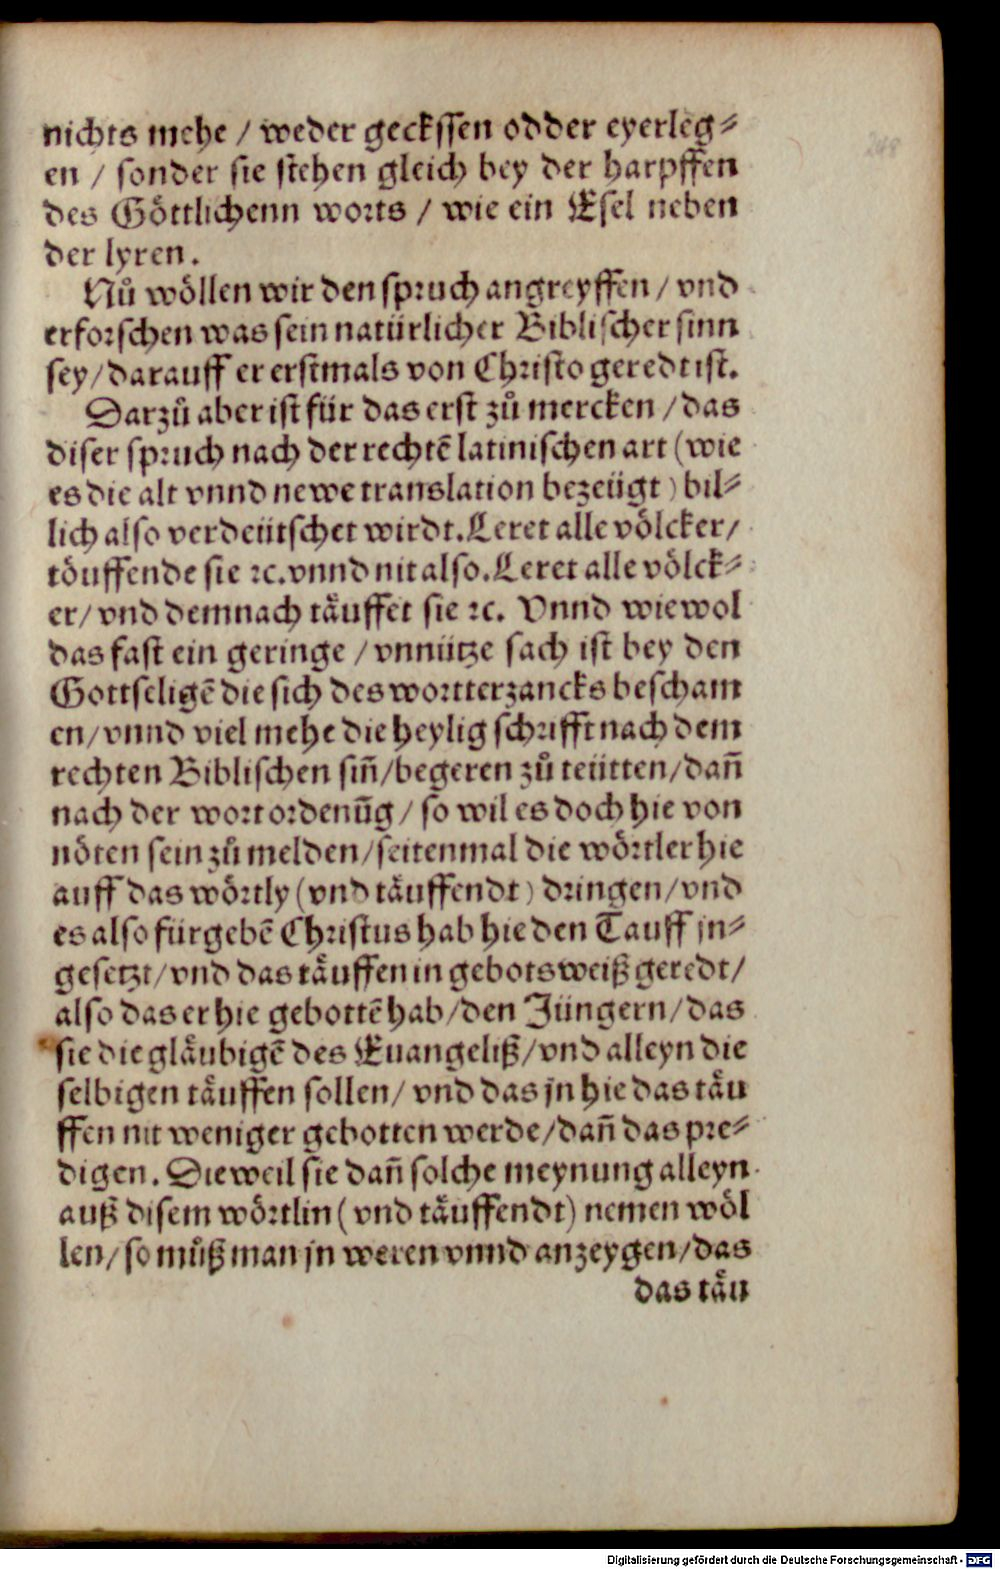 nichts mehe / weder geckssen odder eyerleg⸗
en / sonder sie stehen gleich bey der harpffen
des Göttlichenn worts / wie ein Esel neben
der lyren.
Nů wöllen wir den spruch angreyffen / vnd
erforschen was sein natürlicher Biblischer sinn
sey / darauff er erstmals von Christo geredt ist.
Darzů aber ist für das erst zů mercken / das
diser spruch nach der rechtē latinischen art (wie
es die alt vnnd newe translation bezeügt) bil⸗
lich also verdeütschet wirdt. Leret alle völcker /
töuffende sie ꝛc. vnnd nit also. Leret alle völck⸗
er / vnd demnach tåuffet sie ꝛc. Vnnd wiewol
das fast ein geringe / vnnütze sach ist bey den
Gottseligē die sich des wortterzancks bescham
en / vnnd viel mehe die heylig schrifft nach dem
rechten Biblischen siñ / begeren zů teütten / dañ
nach der wort ordenūg / so wil es doch hie von
nöten sein zů melden / seitenmal die wörtler hie
auff das wörtly (vnd tåuffendt) dringen / vnd
es also fürgebē Christus hab hie den Tauff jn⸗
gesetzt / vnd das tåuffen in gebotsweiß geredt /
also das er hie gebottē hab / den Jüngern / das
sie die glåubigē des Euangeliß / vnd alleyn die
selbigen tåuffen sollen / vnd das jn hie das tåu
ffen nit weniger gebotten werde / dañ das pre⸗
digen. Die weil sie dañ solche meynung alleyn
auß disem wörtlin (vnd tåuffendt) nemen wöl
len / so můß man jn weren vnnd anzeygen / das
das tåu
248
Digitalisierung gefördert durch die Deutsche Forschungsgemeinschaft - DFG